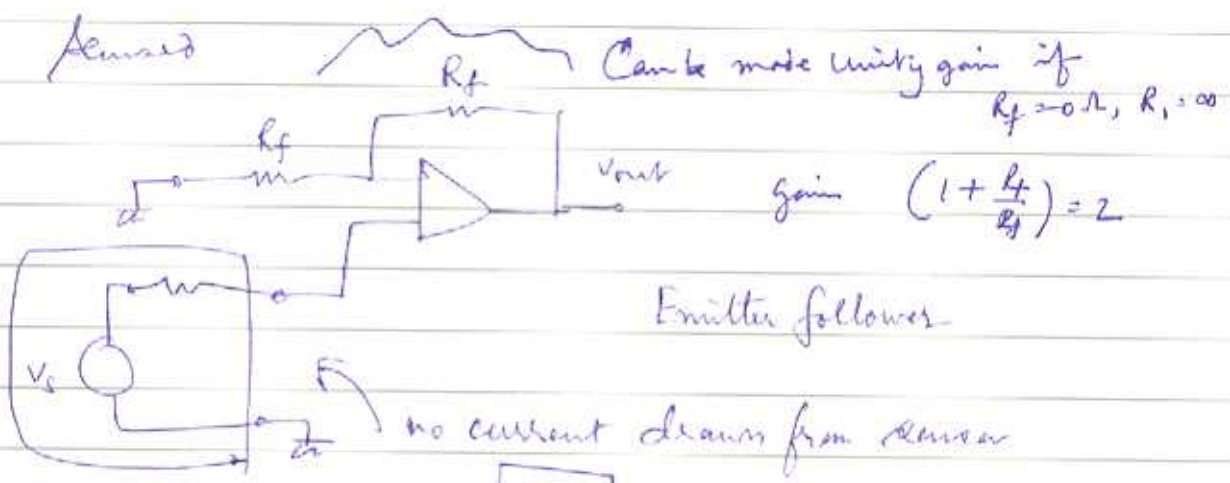 Can be made unity gain if
Rf = 0 Ω, R1 = ∞
Rf
Rf
Vout
gain (1 + Rf/Rf) = 2
Emitter follower
Vs
no current drawn from sensor